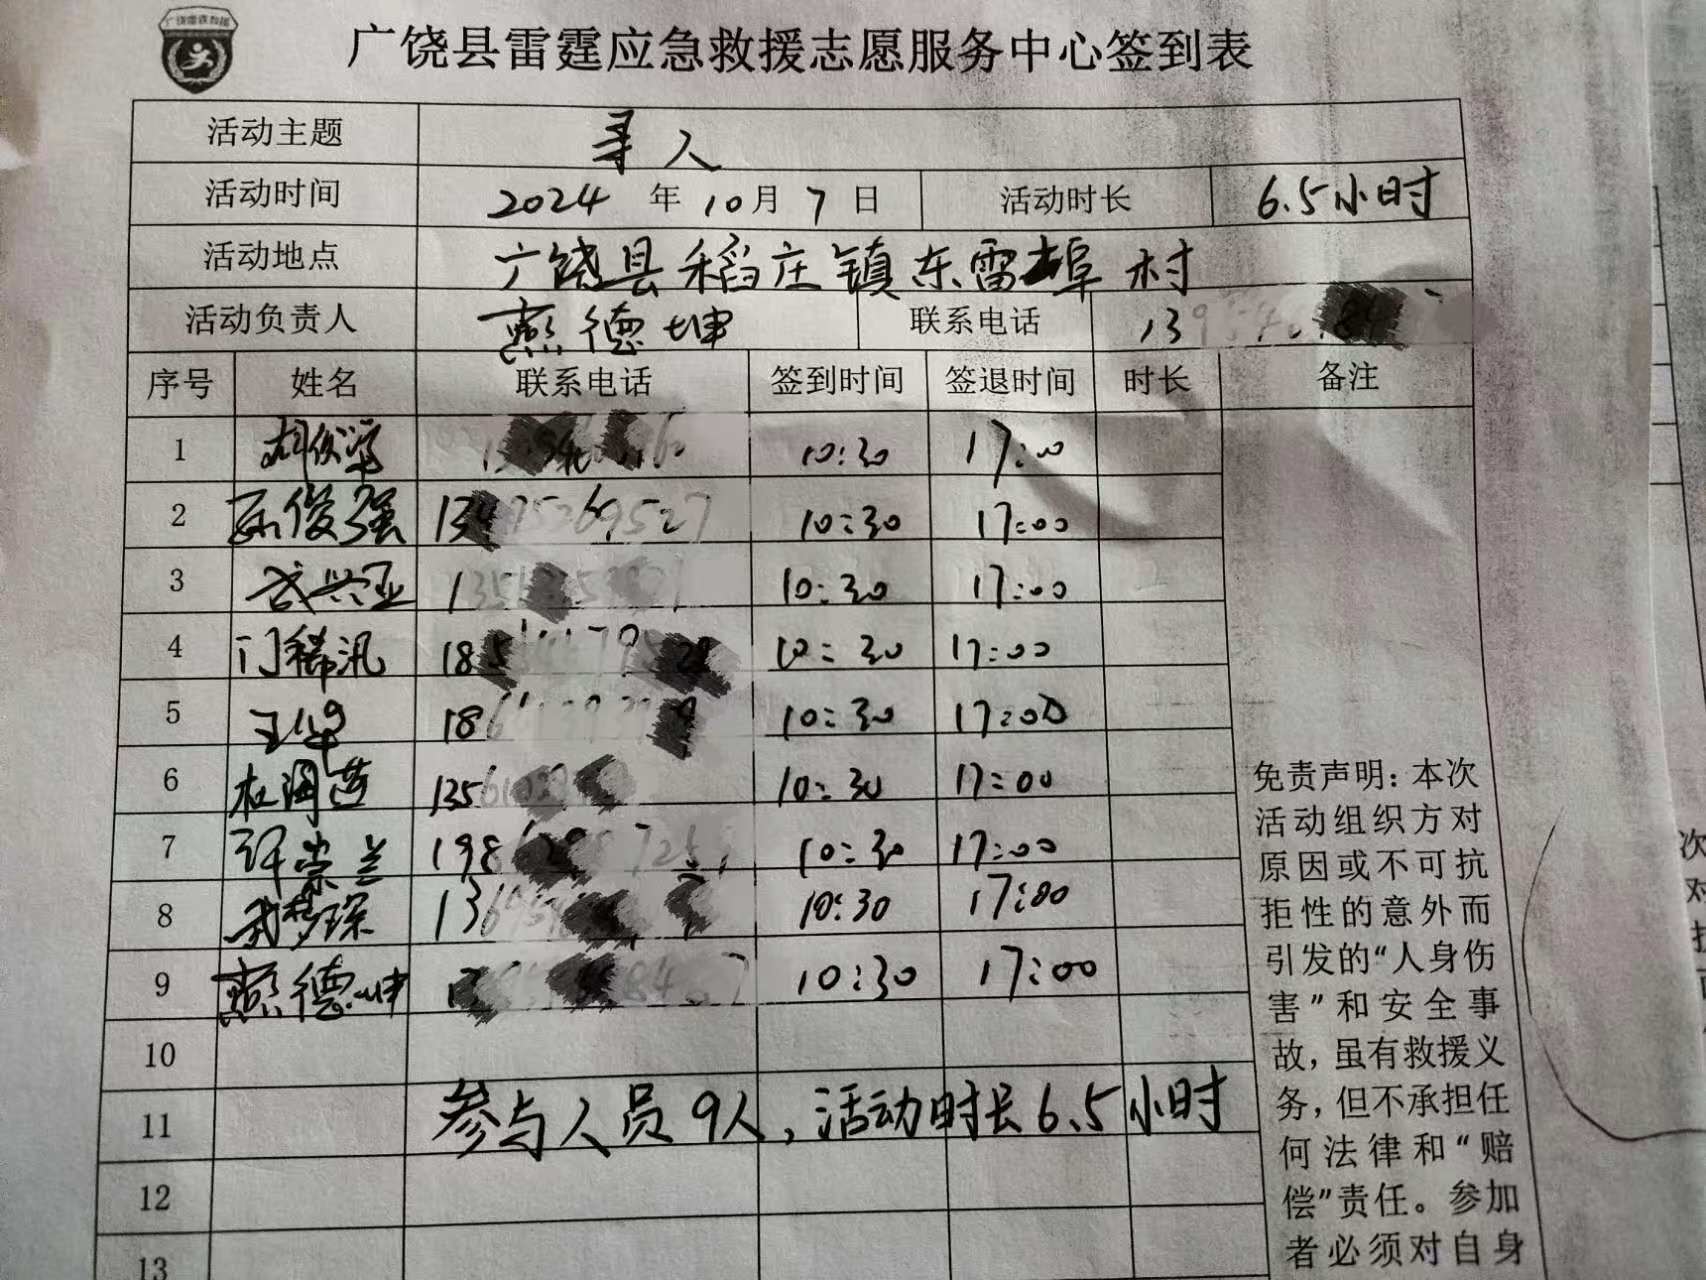 广饶雷霆救援
广饶县雷霆应急救援志愿服务中心签到表
活动主题 寻人
活动时间 2024 年 10 月 7 日 活动时长 6.5小时
活动地点 广饶县稻庄镇东雷埠村
活动负责人 燕德坤 联系电话
序号 姓名 联系电话 签到时间 签退时间 时长 备注
1 10:30 17:00
2 俊强 10:30 17:00
3 武兴亚 10:30 17:00
4 门稀汛 10:30 17:00
5 王华 10:30 17:00
6 杜海莲 10:30 17:00
7 许崇兰 10:30 17:00
8 武梦琛 10:30 17:00
9 燕德坤 10:30 17:00
10
11 参与人员9人,活动时长6.5小时
12
13
免责声明:本次
活动组织方对
原因或不可抗
拒性的意外而
引发的“人身伤
害”和安全事
故,虽有救援义
务,但不承担任
何法律和“赔
偿”责任。参加
者必须对自身
次
对